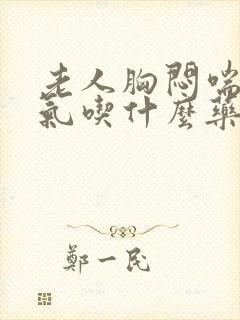 老人胸悶喘
氣喫什麼藥
鄭一民